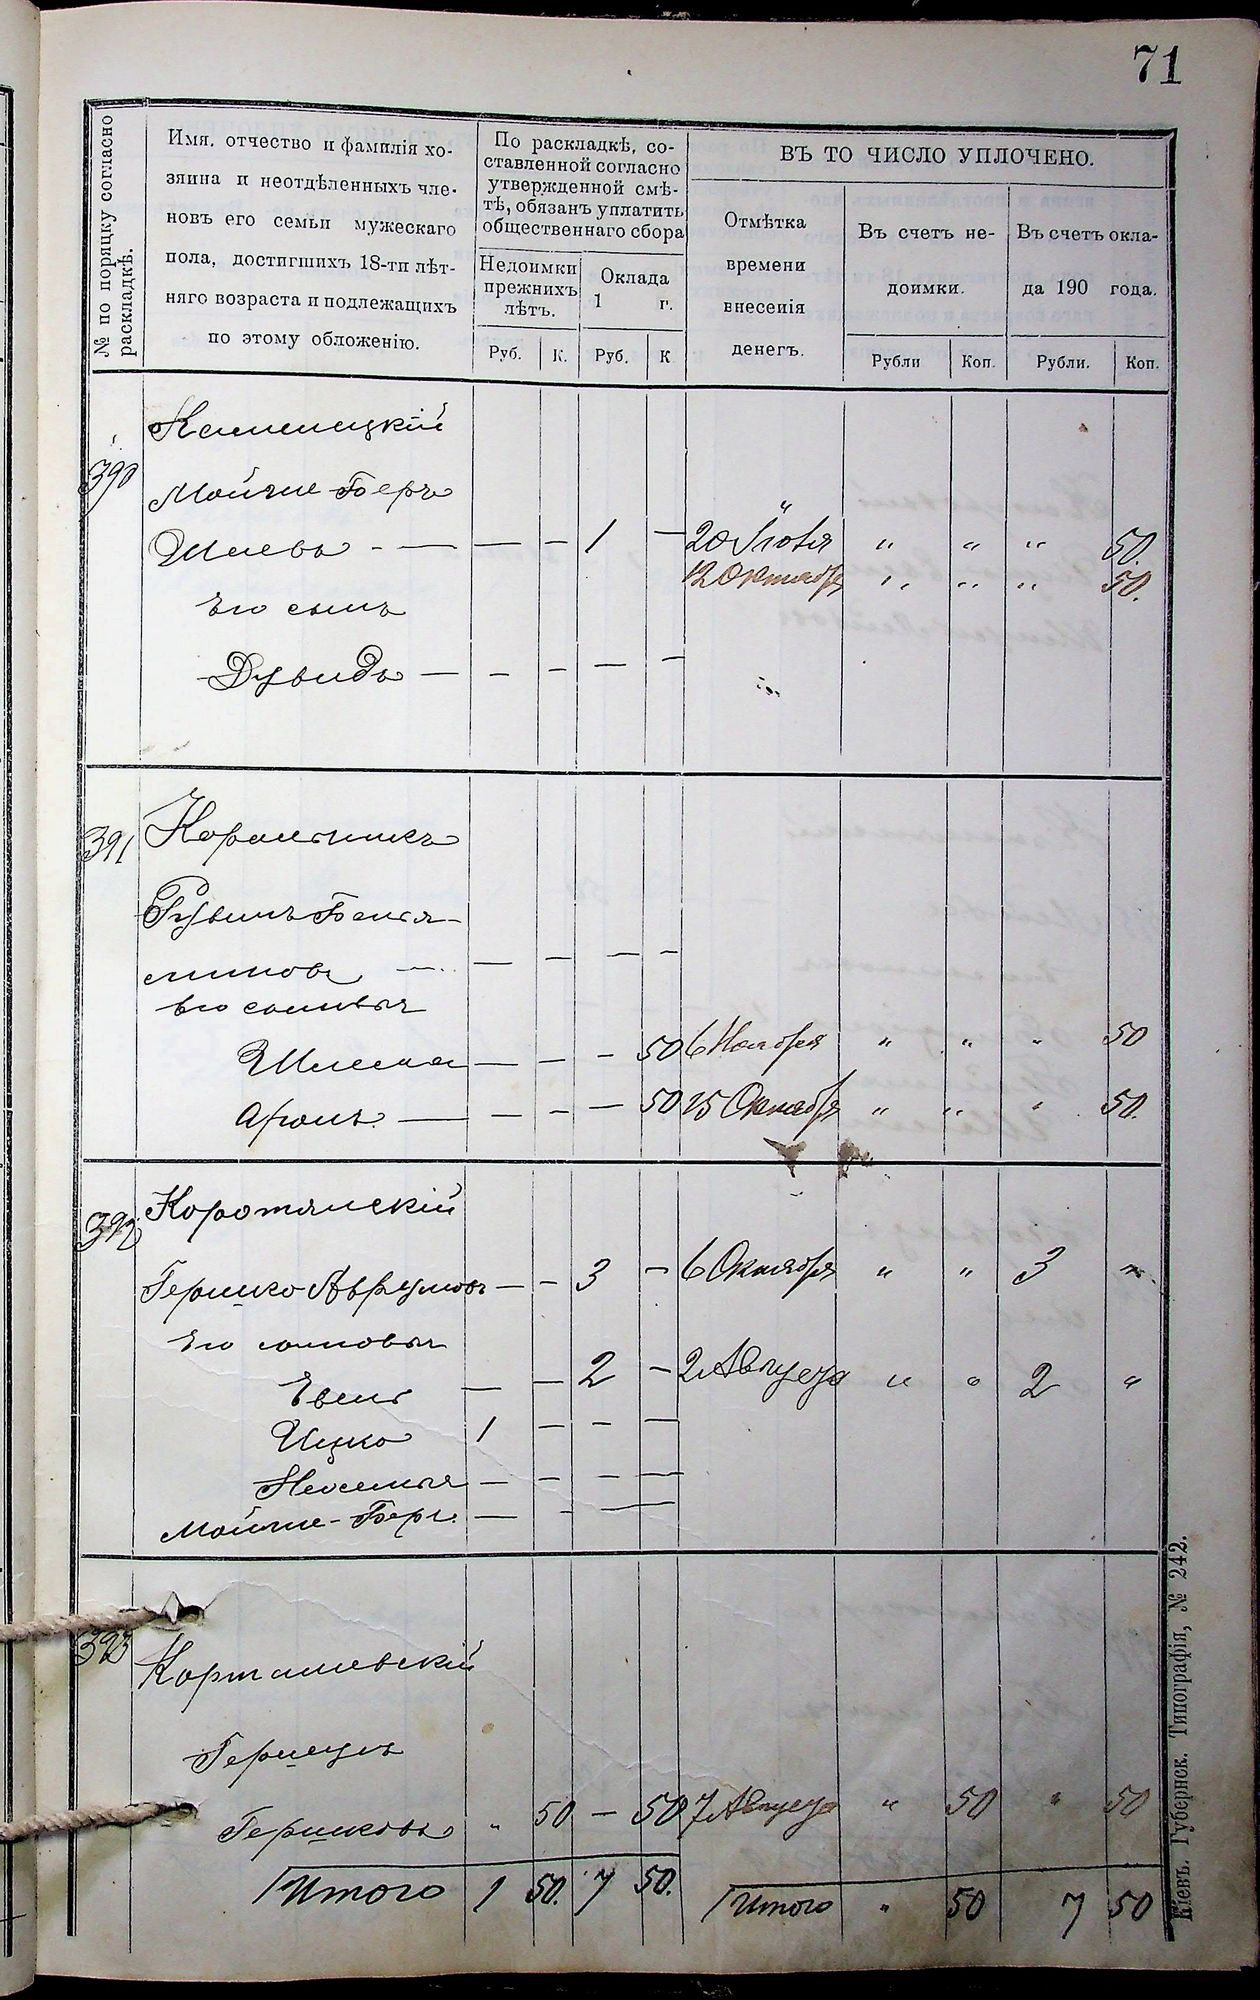 71
№ по порядку согласно раскладкѣ.
Имя, отчество и фамилія хо-
зяина и неотдѣленныхъ чле-
новъ его семьи мужескаго
пола, достигшихъ 18-ти лѣт-
няго возраста и подлежащихъ
по этому обложенію.
По раскладкѣ, со-
ставленной согласно
утвержденной смѣ-
тѣ, обязанъ уплатить
общественнаго сбора
Недоимки
прежнихъ
лѣтъ.
Оклада
1 г.
Руб. К. Руб. К
ВЪ ТО ЧИСЛО УПЛОЧЕНО.
Отмѣтка
времени
внесенія
денегъ.
Въ счетъ не-
доимки.
Въ счетъ окла-
да 190 года.
Рубли Коп. Рубли. Коп.
390
Каменецкій
Мойше-Беръ
Шлевъ - — — — 1 — 20 Іюля " " " 50.
12 Октября " " " 50.
Его сынъ
Дувидъ — — — — —
391
Корольчикъ
Рувинъ Бенья-
миновъ — — — — —
Его сыновья
Шлема — — — 50 6 Ноября " " " 50
Аронъ. — — — — 50 25 Октября " " " 50.
392
Коротянскій
Гершко Аврумовъ — — 3 — 6 Октября " " 3 "
Его сыновья
Евель — — 2 — 2 Августа " " 2 "
Ицко 1 — — —
Нусемья — — — —
Мойше-Беръ. — - —
393
Корташевскій
Гершулъ
Гершковъ " 50 — 50 7 Августа " 50 " 50
Итого 1 50. 7 50. Итого " 50 7 50
Кіевъ. Губернск. Типографія, № 242.